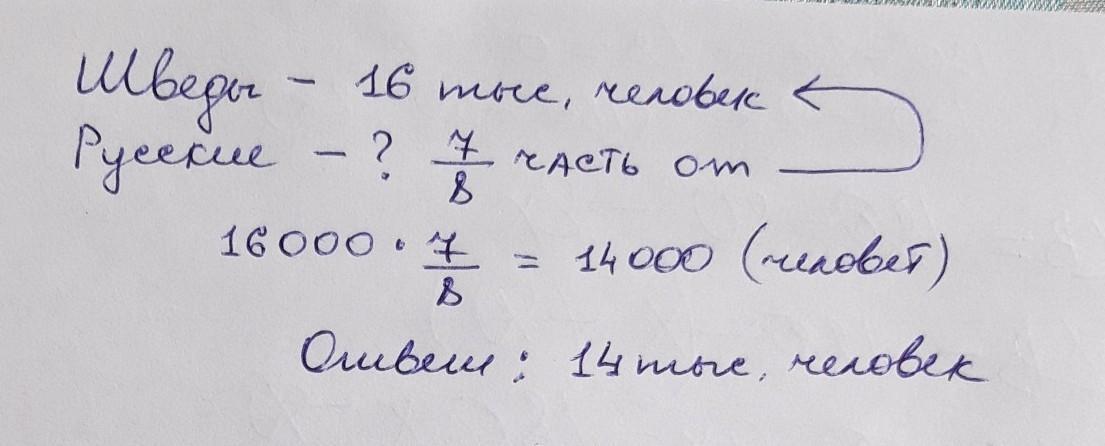 Шведы - 16 тыс. человек
Русские - ? 7/8 часть от
16000 · 7/8 = 14000 (человек)
Ответ: 14 тыс. человек